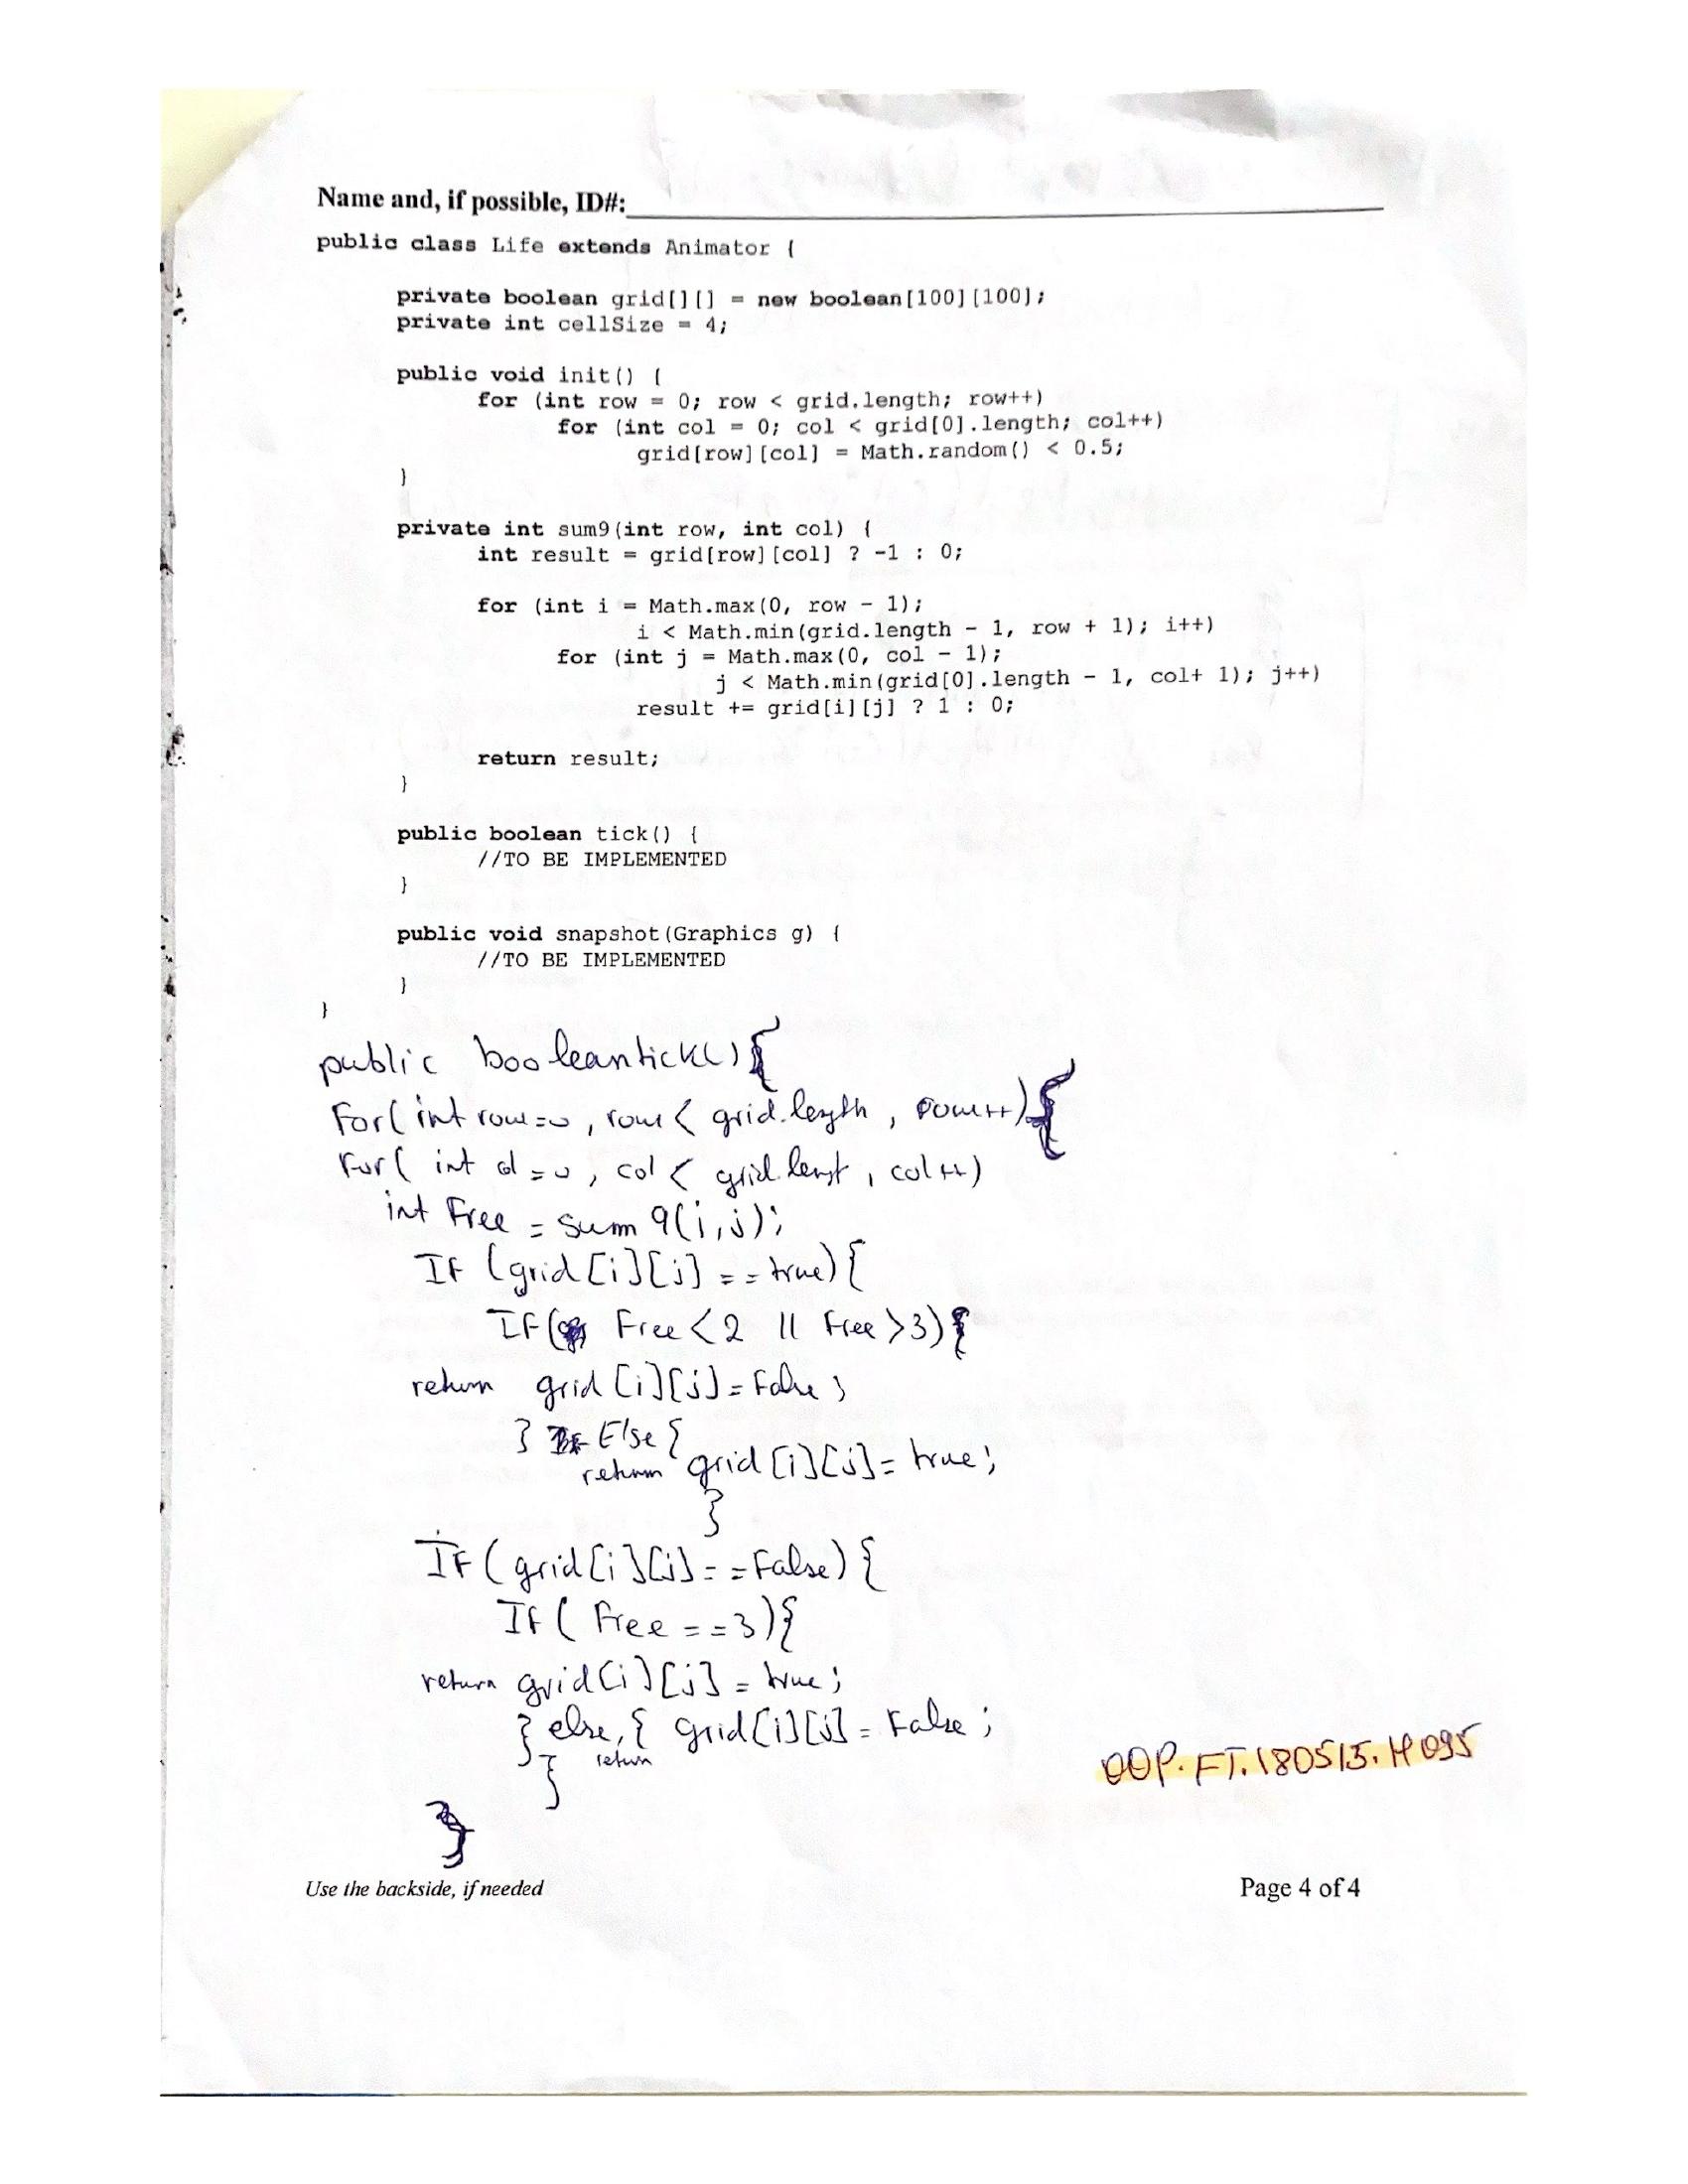 Name and, if possible, ID#:
public class Life extends Animator {
private boolean grid[][] = new boolean[100][100];
private int cellSize = 4;
public void init() {
for (int row = 0; row < grid.length; row++)
for (int col = 0; col < grid[0].length; col++)
grid[row][col] = Math.random() < 0.5;
}
private int sum9(int row, int col) {
int result = grid[row][col] ? -1 : 0;
for (int i = Math.max(0, row - 1);
i < Math.min(grid.length - 1, row + 1); i++)
for (int j = Math.max(0, col - 1);
j < Math.min(grid[0].length - 1, col+ 1); j++)
result += grid[i][j] ? 1 : 0;
return result;
}
public boolean tick() {
//TO BE IMPLEMENTED
}
public void snapshot(Graphics g) {
//TO BE IMPLEMENTED
}
}
public boolean tick() {
For( int row=0 , row < grid.length , row++) {
For( int col =0 , col < grid.lengt , col++)
int Free = sum 9(i,j);
IF (grid [i][j] == true) {
IF( Free < 2 || Free >3) {
return grid [i][j] = False ;
} Else {
return grid [i][j] = true ;
}
IF ( grid [i][j] == False) {
IF ( Free == 3) {
return grid [i][j] = true ;
} else, { grid [i][j] = False ;
return
}
}
OOP.FT.180515.H095
Use the backside, if needed
Page 4 of 4